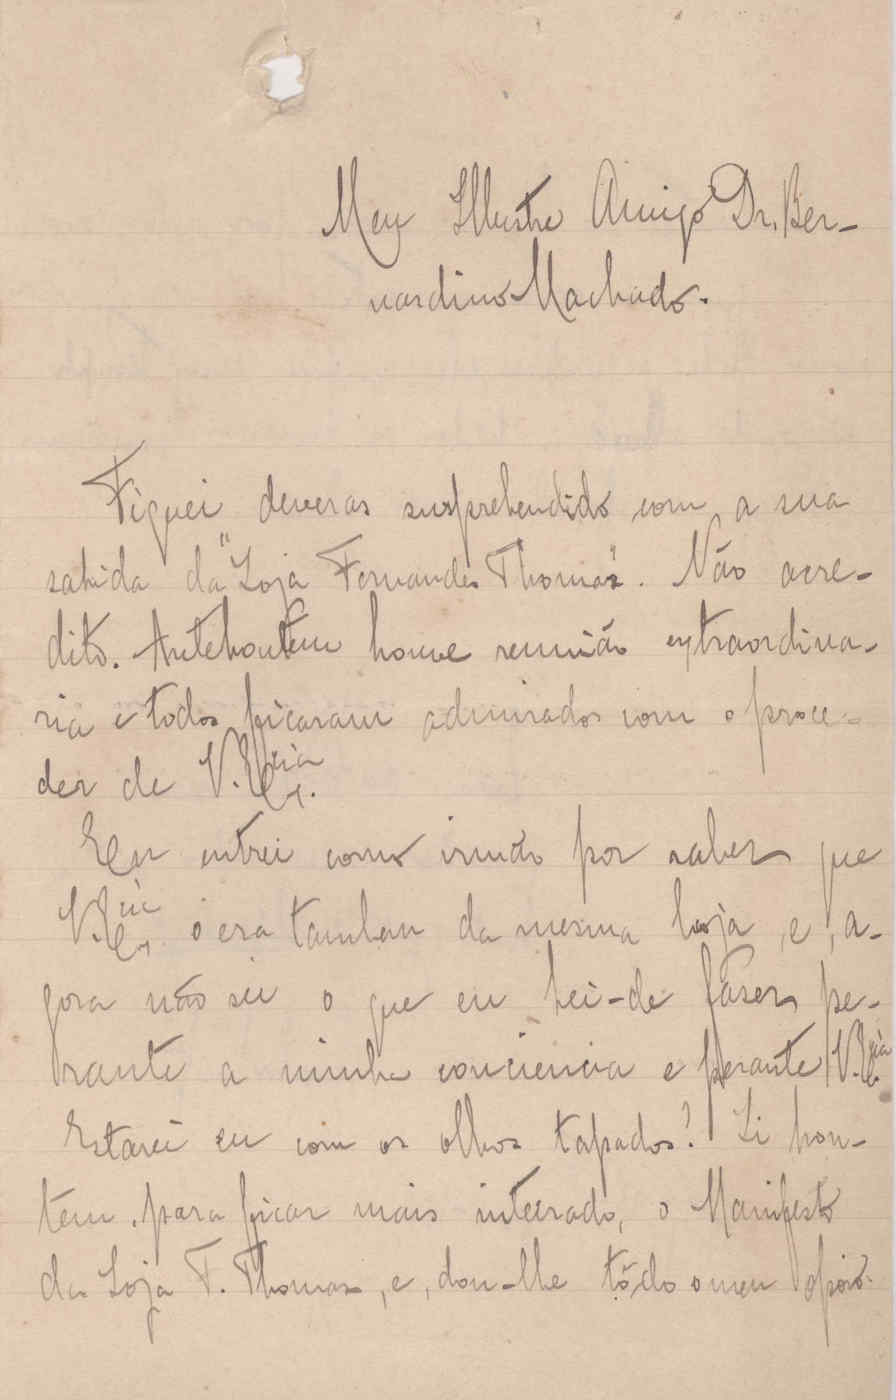 Meu Illustre Amigo Dr. Ber-
nardino Machado.
Fiquei deveras surprehendido com a sua
sahida da "Loja Fernandes Thomaz". Não acre-
dito. Antehontem houve reunião extraordina-
ria e todos ficaram admirados com o proce-
der de V. Ex.cia.
Eu entrei como irmão por saber que
V. Ex.cia o era tambem da mesma loja, e, a-
gora não sei o que eu hei-de fazer pe-
rante a minha conciencia e perante V. Ex.cia
Estarei eu com os olhos tapados? Li hon-
tem, para ficar mais inteirado, o Manifesto
da Loja F. Thomaz, e, dou-lhe tôdo o meu apoio.